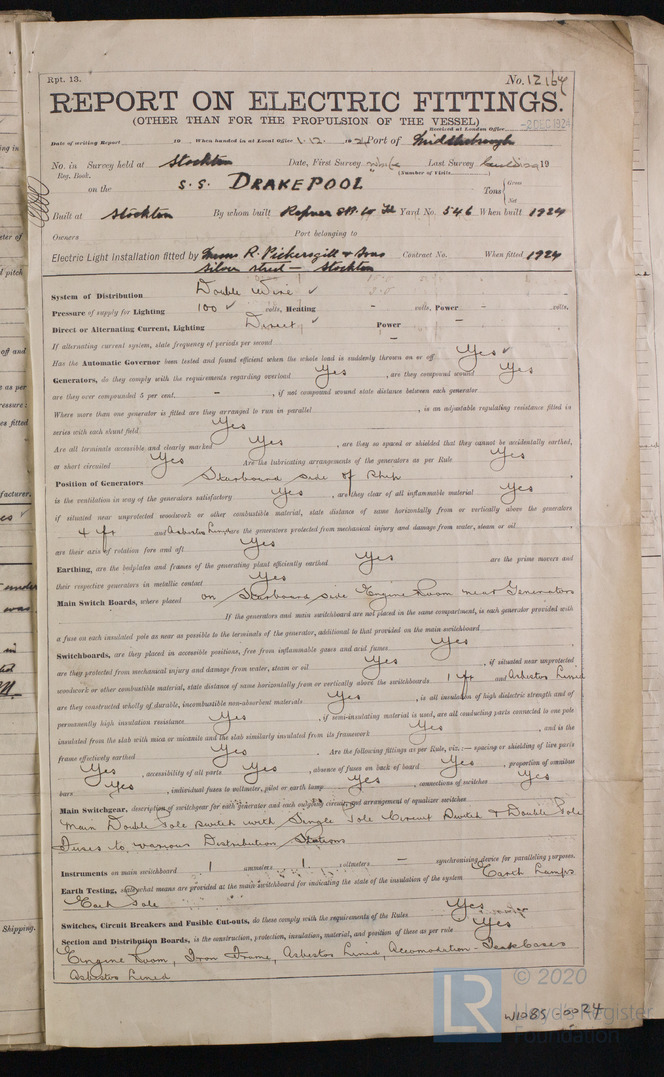 Rpt. 13.
No. 12164
REPORT ON ELECTRIC FITTINGS.
(OTHER THAN FOR THE PROPULSION OF THE VESSEL)
Received at London Office -2 DEC 1924
Date of writing Report 19 When handed in at Local Office 1.12. 1924 Port of Middlesbrough
No. in Survey held at Stockton Date, First Survey Last Survey 19
Reg. Book. (Number of Visits)
on the S.S. DRAKEPOOL Tons { Gross
Net
Built at Stockton By whom built Ropner Yard No. 546 When built 1924
Owners Port belonging to
Electric Light Installation fitted by Messrs R. Pickersgill & Sons Contract No. When fitted 1924
Silver Street — Stockton
System of Distribution Double Wire
Pressure of supply for Lighting 100 volts, Heating - volts, Power - volts.
Direct or Alternating Current, Lighting Direct Power -
If alternating current system, state frequency of periods per second -
Has the Automatic Governor been tested and found efficient when the whole load is suddenly thrown on or off Yes
Generators, do they comply with the requirements regarding overload Yes, are they compound wound Yes
are they over compounded 5 per cent. -, if not compound wound state distance between each generator
Where more than one generator is fitted are they arranged to run in parallel, is an adjustable regulating resistance fitted in
series with each shunt field Yes
Are all terminals accessible and clearly marked Yes, are they so spaced or shielded that they cannot be accidentally earthed,
or short circuited Yes Are the lubricating arrangements of the generators as per Rule Yes
Position of Generators Starboard side of Ship
is the ventilation in way of the generators satisfactory Yes, are they clear of all inflammable material Yes
if situated near unprotected woodwork or other combustible material, state distance of same horizontally from or vertically above the generators
4 ft and Asbestos Lined are the generators protected from mechanical injury and damage from water, steam or oil
are their axis of rotation fore and aft Yes
Earthing, are the bedplates and frames of the generating plant efficiently earthed Yes are the prime movers and
their respective generators in metallic contact Yes
Main Switch Boards, where placed on Starboard side Engine Room near Generators
If the generators and main switchboard are not placed in the same compartment, is each generator provided with
a fuse on each insulated pole as near as possible to the terminals of the generator, additional to that provided on the main switchboard
Switchboards, are they placed in accessible positions, free from inflammable gases and acid fumes Yes
are they protected from mechanical injury and damage from water, steam or oil Yes, if situated near unprotected
woodwork or other combustible material, state distance of same horizontally from or vertically above the switchboards 1 ft and Asbestos Lined
are they constructed wholly of durable, incombustible non-absorbent materials Yes, is all insulation of high dielectric strength and of
permanently high insulation resistance Yes, if semi-insulating material is used, are all conducting parts connected to one pole
insulated from the slab with mica or micanite and the slab similarly insulated from its framework Yes, and is the
frame effectively earthed Yes. Are the following fittings as per Rule, viz.:— spacing or shielding of live parts
Yes, accessibility of all parts Yes, absence of fuses on back of board Yes, proportion of omnibus
bars Yes, individual fuses to voltmeter, pilot or earth lamp Yes, connections of switches Yes
Main Switchgear, description of switchgear for each generator and each outgoing circuit and arrangement of equalizer switches
Main Double Pole switch with Single Pole Circuit Switch & Double Pole
Fuses to various Distribution Stations
Instruments on main switchboard 1 ammeters 1 voltmeters — synchronising device for paralleling purposes.
Earth Testing, state what means are provided at the main switchboard for indicating the state of the insulation of the system Earth Lamps
Each Pole
Switches, Circuit Breakers and Fusible Cut-outs, do these comply with the requirements of the Rules Yes
Section and Distribution Boards, is the construction, protection, insulation, material, and position of these as per rule Yes
Engine Room, Iron Frame, Asbestos Lined, Accomodation - Teak Cases
Asbestos Lined
© 2020
LR
Lloyd's Register
Foundation
W1085-0024
Shipping.